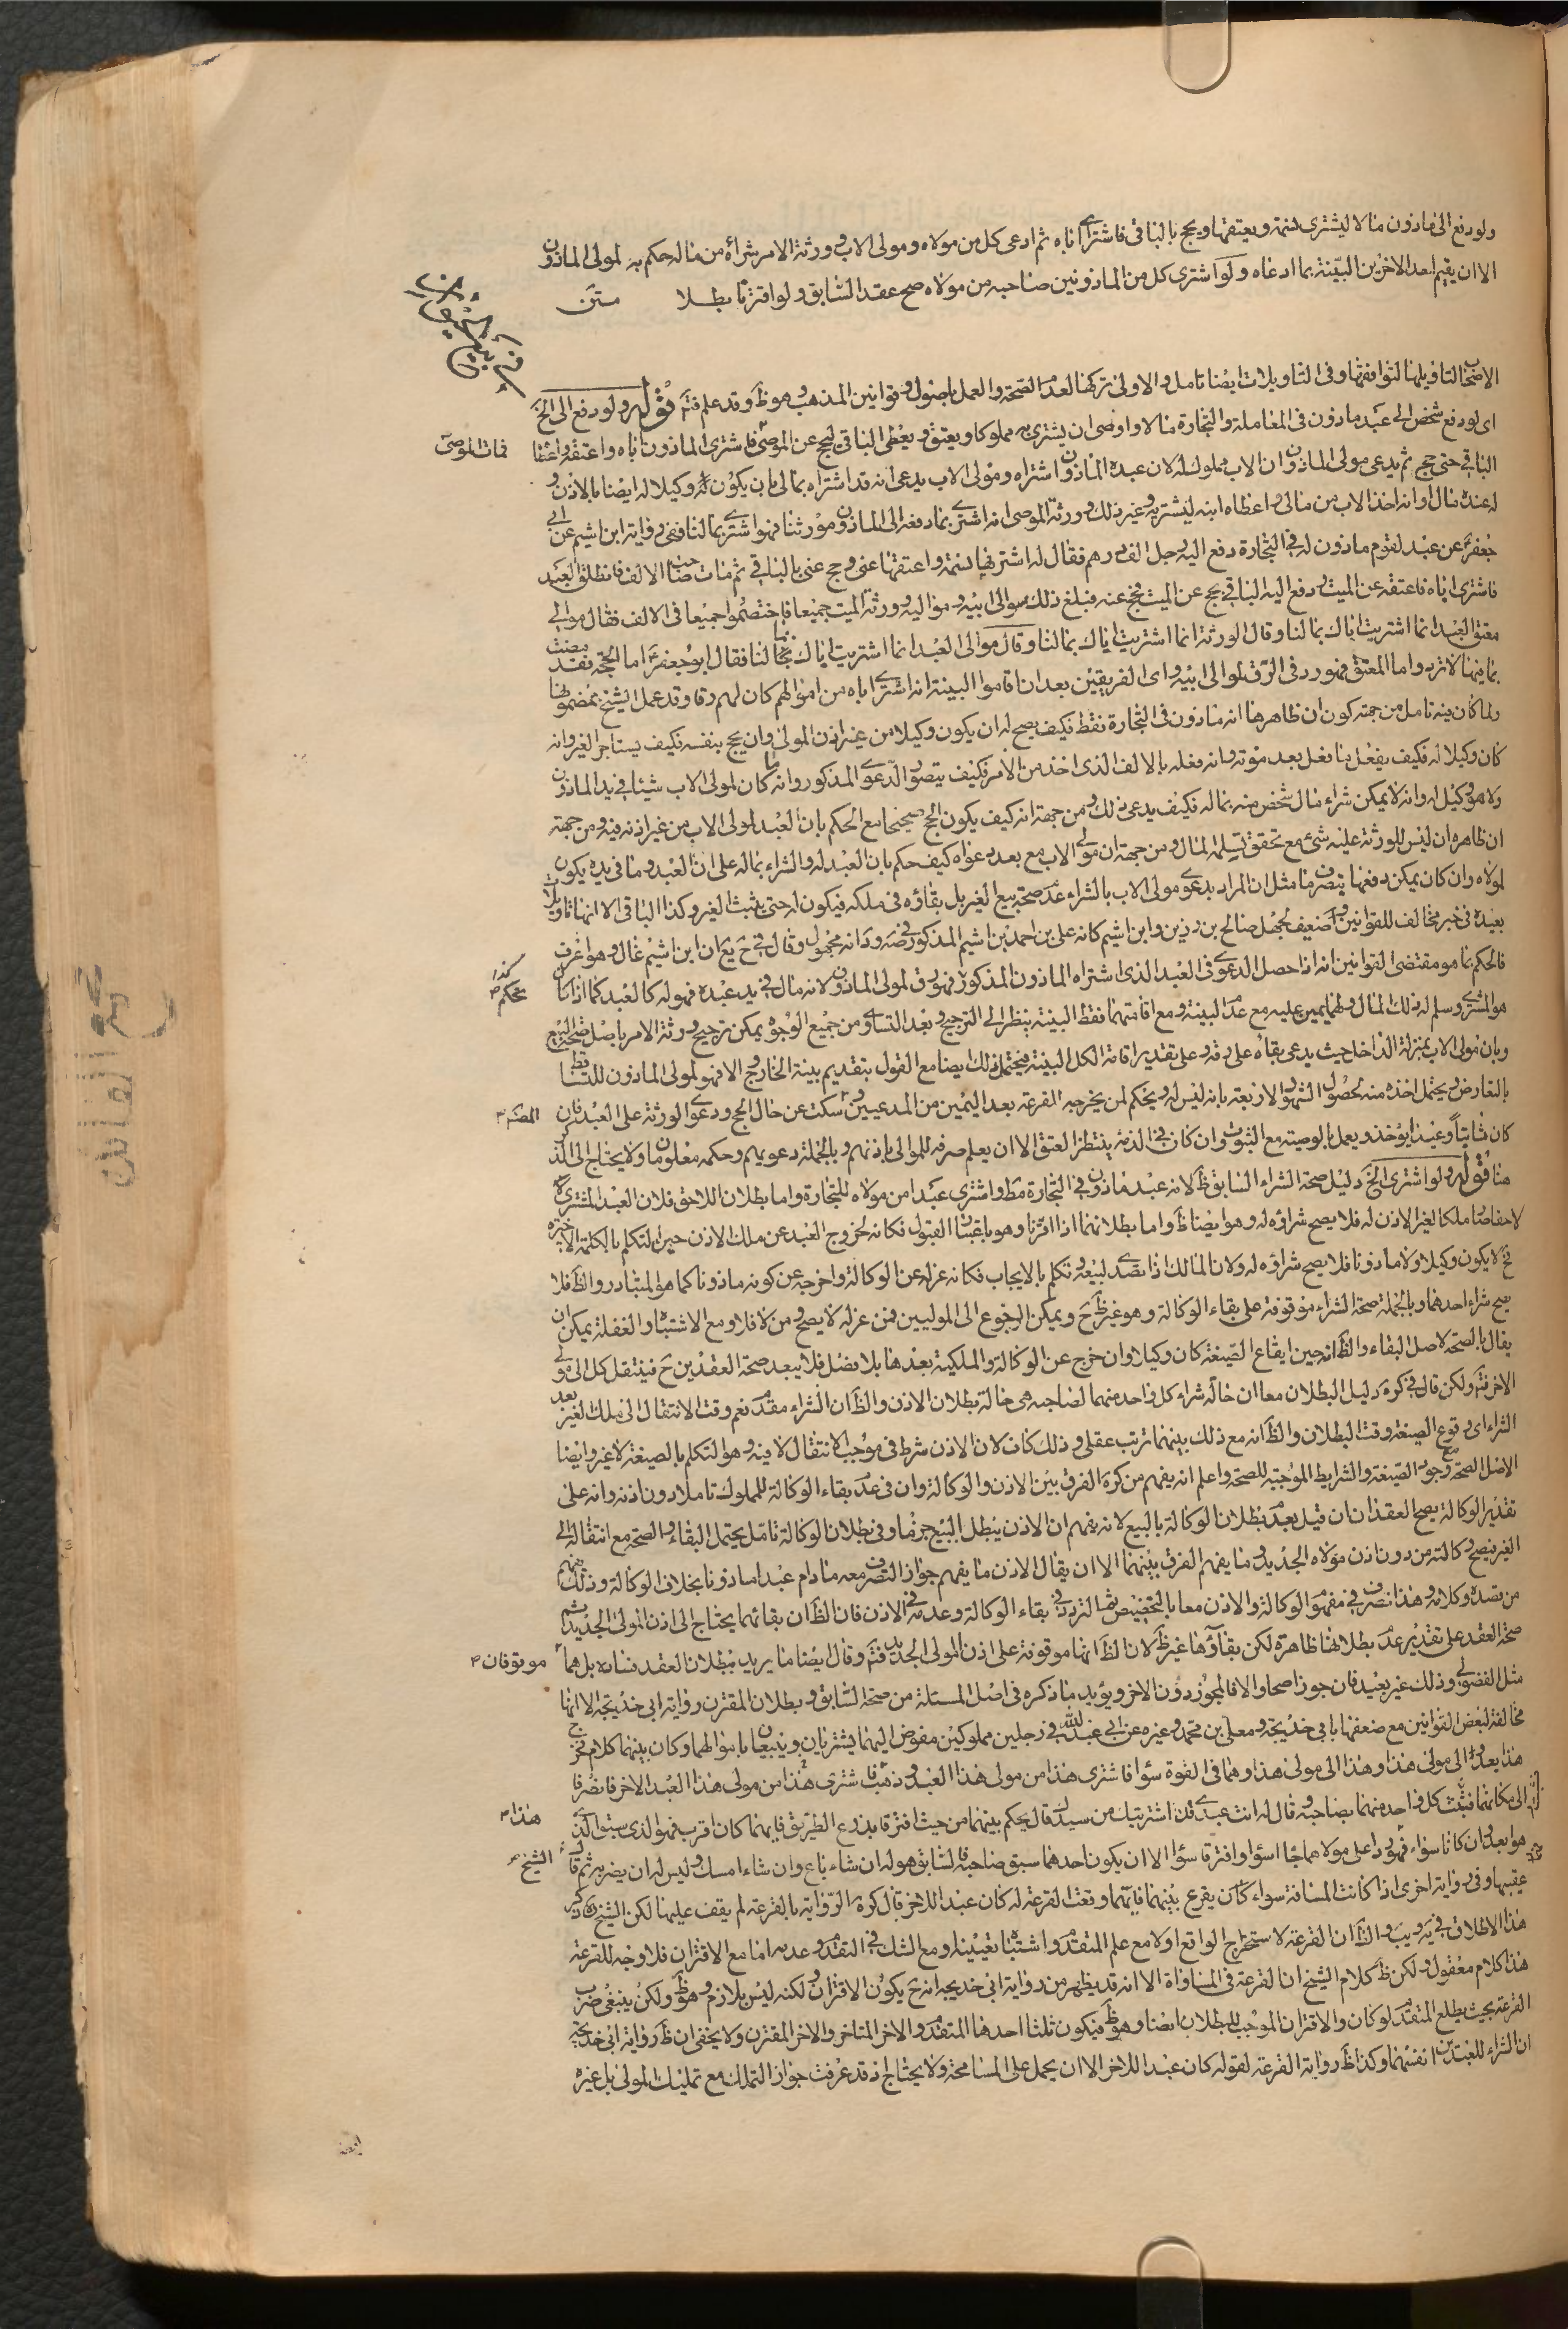 ولو دفع الى ماذون مالا ليشترى نسمة ويعتقها ويحج بالباقى فاشترى اباه ثم ادعى كل من مولاه ومولى الاب وورثة الامر شرائه من ماله حكم به لمولى الماذون
الا ان يقيم احد الاخرين البينة بما ادعاه ولو اشترى كل من الماذونين صاحبه من مولاه صح عقد السابق ولو اقترنا بطلا متن
الاصحاب لتاويلها لتوافقها وفى التاويلات ايضا تامل والاولى تركها لعدم الصحة والعمل باصول وقوانين المذهب وهو ظ وقد علم فتم قوله ولو دفع الى الخ
اى لو دفع شخص الى عبد ماذون فى المعاملة والتجارة مالا واوصى ان يشترى به مملوكا ويعتق ويعطى الباقى ليحج عن الموصى فاشترى الماذون اباه واعتقه واعطا
فمات الموصى
الباقى حتى حج ثم يدعى مولى الماذون ان الاب مملوك له لان عبده الماذون اشتراه ومولى الاب يدعى انه قد اشتراه بمالى بان يكون له وكيلا له ايضا بالاذن و
له عنده مال او انه اخذ الاب من مالى واعطاه ابنه ليشتريه وغير ذلك وورثة الموصى انه اشترى بما دفعه الى الماذون مورثنا فهو اشترى بمالنا ففى رواية ابن اشيم عن ابى
جعفر ع عن عبد لقوم ماذون له فى التجارة دفع اليه رجل الف درهم فقال له اشتر بها نسمة واعتقها عنى وحج عنى بالباقى ثم مات صاحب الالف فانطلق العبد
فاشترى اباه فاعتقه عن الميت ودفع اليه الباقى يحج عن الميت فحج عنه فبلغ ذلك موالى ابيه ومواليه وورثة الميت جميعا فاختصموا جميعا فى الالف فقال موالى
معتق العبد انما اشتريت اباك بمالنا وقال الورثة انما اشتريت اباك بمالنا وقال موالى العبد انما اشتريت اباك بمالنا فقال ابو جعفر ع اما الحجة فقد مضت
بما فيها لا ترد واما المعتق فهو رد فى الرق لموالى ابيه واى الفريقين بعد ان اقاموا البينة انه اشترى اباه من اموالهم كان لهم رقا وقد عمل الشيخ بمضمونها
ولما كان فيه تامل من جهة كون ان ظاهرها انه ماذون فى التجارة فقط فكيف يصح له ان يكون وكيلا من غير اذن المولى وان يحج بنفسه فكيف يستاجر الغير وانه
كان وكيلا له فكيف يفعل ما فعل بعد موته وانه فعله بالالف الذى اخذ من الامر فكيف يتصور الدعوى المذكور وانه ما كان لمولى الاب شيئا فى يد الماذون
ولا هو وكيل له وانه لا يمكن شراء مال شخص منه بماله فكيف يدعى ذلك ومن جهة انه كيف يكون الحج صحيحا مع الحكم بان العبد لمولى الاب من غير اذنه فيه ومن جهة
ان ظاهره ان ليس للورثة عليه شئ مع تحقق تسلمه المال ومن جهة ان مولى الاب مع بعد دعواه كيف حكم بان العبد له والشراء بماله على ان العبد وما فى يده يكون
لمولاه وان كان يمكن دفعها بتصرف ما مثل ان المراد بدعوى مولى الاب بالشراء عدم صحة بيع الغير بل بقاؤه فى ملكه فيكون له حتى يثبت الغير وكذا الباقى الا انها تاويلات
بعيدة فى خبر مخالف للقوانين وضعيف لجهل صالح بن رزين وابن اشيم كانه على بن احمد بن اشيم المذكور فى صه ود انه مجهول وقال فى ح يع ان ابن اشيم غال وهو اعرف
فالحكم بما هو مقتضى القوانين انه اذا حصل الدعوى فى العبد الذى اشتراه الماذون المذكور فهو رق لمولى الماذون لانه مال فى يد عبده فهو له كالعبد كما اذا كان
كذا يحكم م
هو المشترى وسلم له ذلك المال ولهما يمين عليه مع عدم البينة ومع اقامتهما فقط البينة ينظر الى الترجيح وبعد التساوى من جميع الوجوه يمكن ترجيح ورثة الامر باصل صحة البيع
وبان مولى الاب بمنزلة الداخل حيث يدعى بقاه على رقه وعلى تقدير اقامة الكل البينة فيحتمل ذلك ايضا مع القول بتقديم بينة الخارج والا فهو لمولى الماذون للتساقط
بالتعارض ويحتمل اخذه منه لحصول الشهود الاربعة بانه ليس له ويحكم لمن يخرجه القرعة بعد اليمين من المدعيين وسكت عن حال الحج ودعوى الورثة على العبد فان
المصنف م
كان ثابتا وعبدا يؤخذ ويعمل بالوصية مع الثبوت وان كان فى الذمة ينتظر العتق الا ان يعلم صرفه للموالى باذنهم وبالجملة دعويهم وحكمه معلومان ولا يحتاج الى الذكر
هنا قوله ولو اشترى الخ دليل صحة الشراء السابق ظ لانه عبد ماذون فى التجارة مط واشترى عبدا من مولاه للتجارة واما بطلان اللاحق فلان العبد المشترى
لاحقا صار ملكا لغير الاذن له فلا يصح شراؤه له وهو ايضا ظ واما بطلانهما اذا اقترنا وهو باعتبار القبول فكانه لخروج العبد عن ملك الاذن حين التكلم بالكلمة الاخيرة
فح لا يكون وكيلا ولا ماذونا فلا يصح شراؤه له ولان المالك اذا تصدى لبيعه وتكلم بالايجاب فكانه عزله عن الوكالة واخرجه عن كونه ماذونا كما هو المتبادر والظ فلا
يصح شراء احدهما وبالجملة صحة الشراء موقوفة على بقاء الوكالة وهو غير ظ ح ويمكن الرجوع الى الموليين فمن عزله لا يصح ومن لا فلا ومع الاشتباه والغفلة يمكن ان
يقال بالصحة لاصل البقاء والظ انه حين ايقاع الصيغة كان وكيلا وان خرج عن الوكالة والملكية بعدها بلا فصل فلا يبعد صحة العقدين ح فينتقل كل الى مولى
الاخر فتم ولكن قال فى كره دليل البطلان معا ان حالة شراء كل واحد منهما لصاحبه هى حالة بطلان الاذن والظ ان الشراء مقدم نعم وقت الانتقال الى ملك الغير بعد
الشراء اى وقوع الصيغة وقت البطلان والظ انه مع ذلك بينهما ترتب عقلى وذلك كاف لان الاذن شرط فى موجب الانتقال لا فيه وهو التكلم بالصيغة لا غير وايضا
الاصل الصحة مع وجود الصيغة والشرايط الموجبة للصحة واعلم انه يفهم من كره الفرق بين الاذن والوكالة وان فى عدم بقاء الوكالة للمملوك تاملا دون اذنه وانه على
تقدير الوكالة يصح العقدان ان قيل بعدم بطلان الوكالة بالبيع لانه يفهم ان الاذن يبطل بالبيع جزما وفى بطلان الوكالة تامل يحتمل البقاء والصحة مع انتقاله الى
الغير فيصح وكالته من دون اذن مولاه الجديد وما يفهم الفرق بينهما الا ان يقال الاذن ما يفهم جواز التصرف معه ما دام عبدا ماذونا بخلاف الوكالة وذلك يفهم
من قصده وكلامه وهذا تصرف فى مفهوم الوكالة والاذن معا بالتخصيص ثم التردد فى بقاء الوكالة وعدمه فى الاذن فان الظ ان بقائهما يحتاج الى اذن المولى الجديد ثم
صحة العقد على تقدير عدم بطلانها ظاهرة لكن بقاؤها غير ظ لان الظ انها موقوفة على اذن المولى الجديد فتم وقال ايضا ما يريد ببطلان العقد فساده بل هما
موقوفان م
مثل الفضولى وذلك غير بعيد فان جوزا صحا والا فالمجوز دون الاخر ويؤيد ما ذكره فى اصل المسئلة من صحة السابق وبطلان المقترن رواية ابى خديجة الا انها
مخالفة لبعض القوانين مع ضعفها بابى خديجة ومعلى بن محمد وغيره عن ابى عبد الله ع فى رجلين مملوكين مفوض اليهما يشتريان ويبيعان باموالهما وكان بينهما كلام فخرج
هذا يعدو الى مولى هذا وهذا الى مولى هذا وهما فى القوة سواء فاشترى هذا من مولى هذا العبد وذهب فاشترى هذا من مولى هذا العبد الاخر فانصرفا
الى مكانهما فتشبث كل واحد منهما بصاحبه وقال له انت عبدى قد اشتريتك من سيدك قال يحكم بينهما من حيث افترقا يذرع الطريق فايهما كان اقرب فهو الذى سبق الذى
هذا م
هو ابعد وان كانا سواء فهو رد على مولاهما جاءا سواء وافترقا سواء الا ان يكون احدهما سبق صاحبه فالسابق هو له ان شاء باع وان شاء امسك وليس له ان يضر به ثم قال
الشيخ م
عقيبها وفى رواية اخرى اذا كانت المسافة سواء كان يقرع بينهما فايهما وقعت القرعة له كان عبدا للاخر قال كره الرواية بالقرعة لم يقف عليها لكن الشيخ ره ذكر
هذا الاطلاق فى يه ويب والظ ان القرعة لاستخراج الواقع اولا مع علم المتقدم واشتباه تعيينه ومع الشك فى التقدم وعدمه اما مع الاقتران فلا وجه للقرعة
هذا كلام معقول ولكن ظ كلام الشيخ ان القرعة فى المساواة الا انه قد يظهر من رواية ابى خديجة انه ح يكون الاقتران ولكنه ليس بلازم وهو ظ ولكن ينبغى ضرب
القرعة بحيث يطلع المتقدم لو كان والاقتران الموجب للبطلان ايضا وهو ظ فيكون ثلثا احدها المتقدم والاخر المتاخر والاخر المقترن ولا يخفى ان ظ رواية ابى خديجة
ان الشراء للعبدين انفسهما وكذا ظ رواية القرعة لقوله كان عبدا للاخر الا ان يحمل على المسامحة ولا يحتاج اذ قد عرفت جواز التملك مع تمليك المولى بل غيره